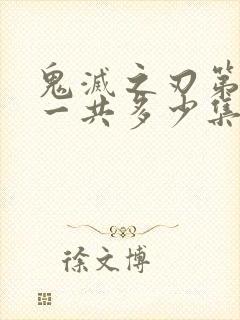 鬼滅之刃第
一共多少集
徐文博